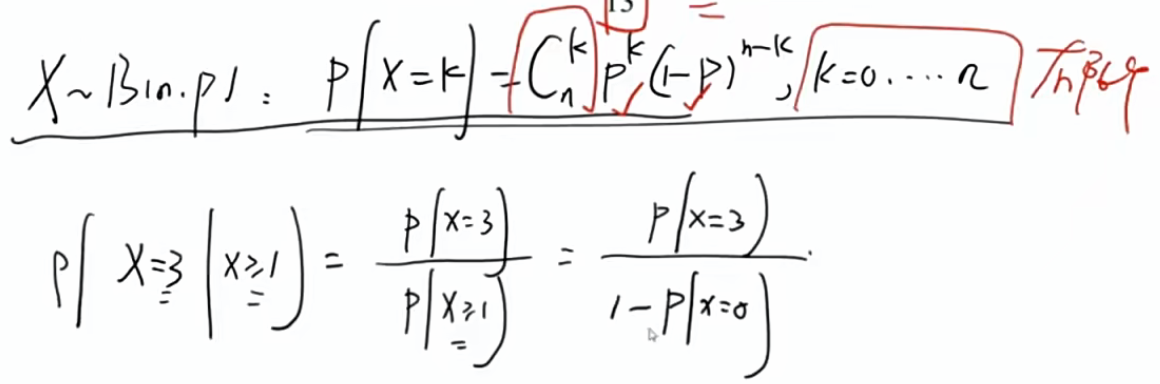 15
X~B(n.p): P(X=k)=C_n^k p^k (1-p)^{n-k}, k=0....n
P(X=3|X≥1) = P(X=3)/P(X≥1) = P(X=3)/(1-P(X=0))